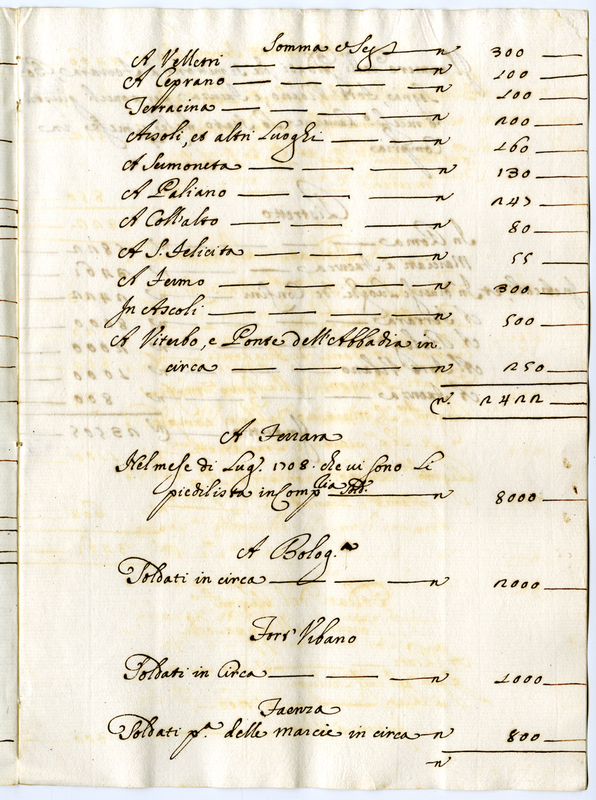 Somma e Seg n 300
A Velletri n 100
A Ceprano n 100
Terracina n 200
Arsoli, et altri Luoghi n 160
A Sermoneta n 130
A Paliano n 247
A Coll'alto n 80
A S. Felicita n 55
A Fermo n 300
In Ascoli n 500
A Viterbo, e Ponte dell'Abbadia in
circa n 250
n. 2422
A Ferrara
Nel mese di Lug. 1708. che vi sono Li
piedilista in Comp n 8000
A Bolog.a
Soldati in circa n 2000
Fort' Urbano
Soldati in Circa 1000
Faenza
Soldati p.a delle marcie in circa n 800
n